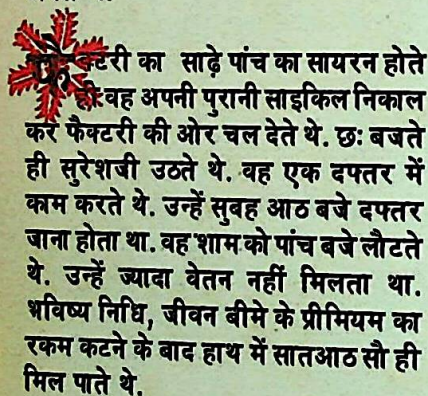 का साढ़े पांच का सायरन होते
ही वह अपनी पुरानी साइकिल निकाल
कर फैक्टरी की ओर चल देते थे. छः बजते
ही सुरेशजी उठते थे. वह एक दफ्तर में
काम करते थे. उन्हें सुबह आठ बजे दफ्तर
जाना होता था. वह शाम को पांच बजे लौटते
थे. उन्हें ज्यादा वेतन नहीं मिलता था.
भविष्य निधि, जीवन बीमे के प्रीमियम का
रकम कटने के बाद हाथ में सातआठ सौ ही
मिल पाते थे.